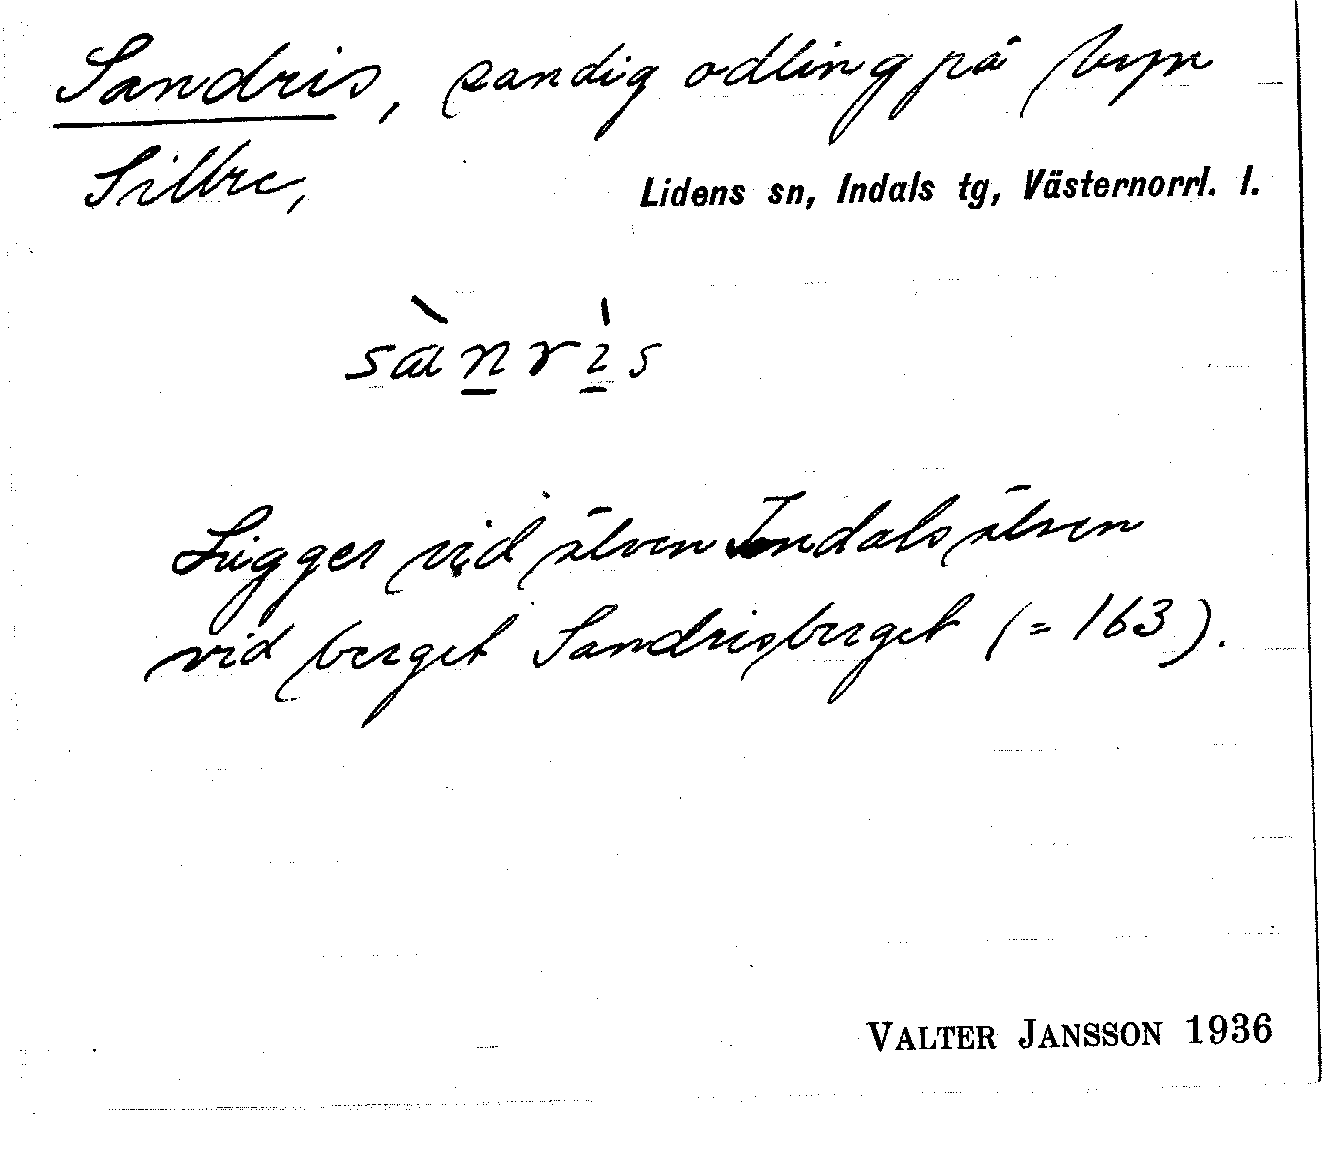 Sandris, sandig odling på byn
Sillre,
Lidens sn, Indals tg, Västernorrl. l.
sànrìs
Ligger vid älven Indalsälven
vid berget Sandrisberget (= 163).
VALTER JANSSON 1936